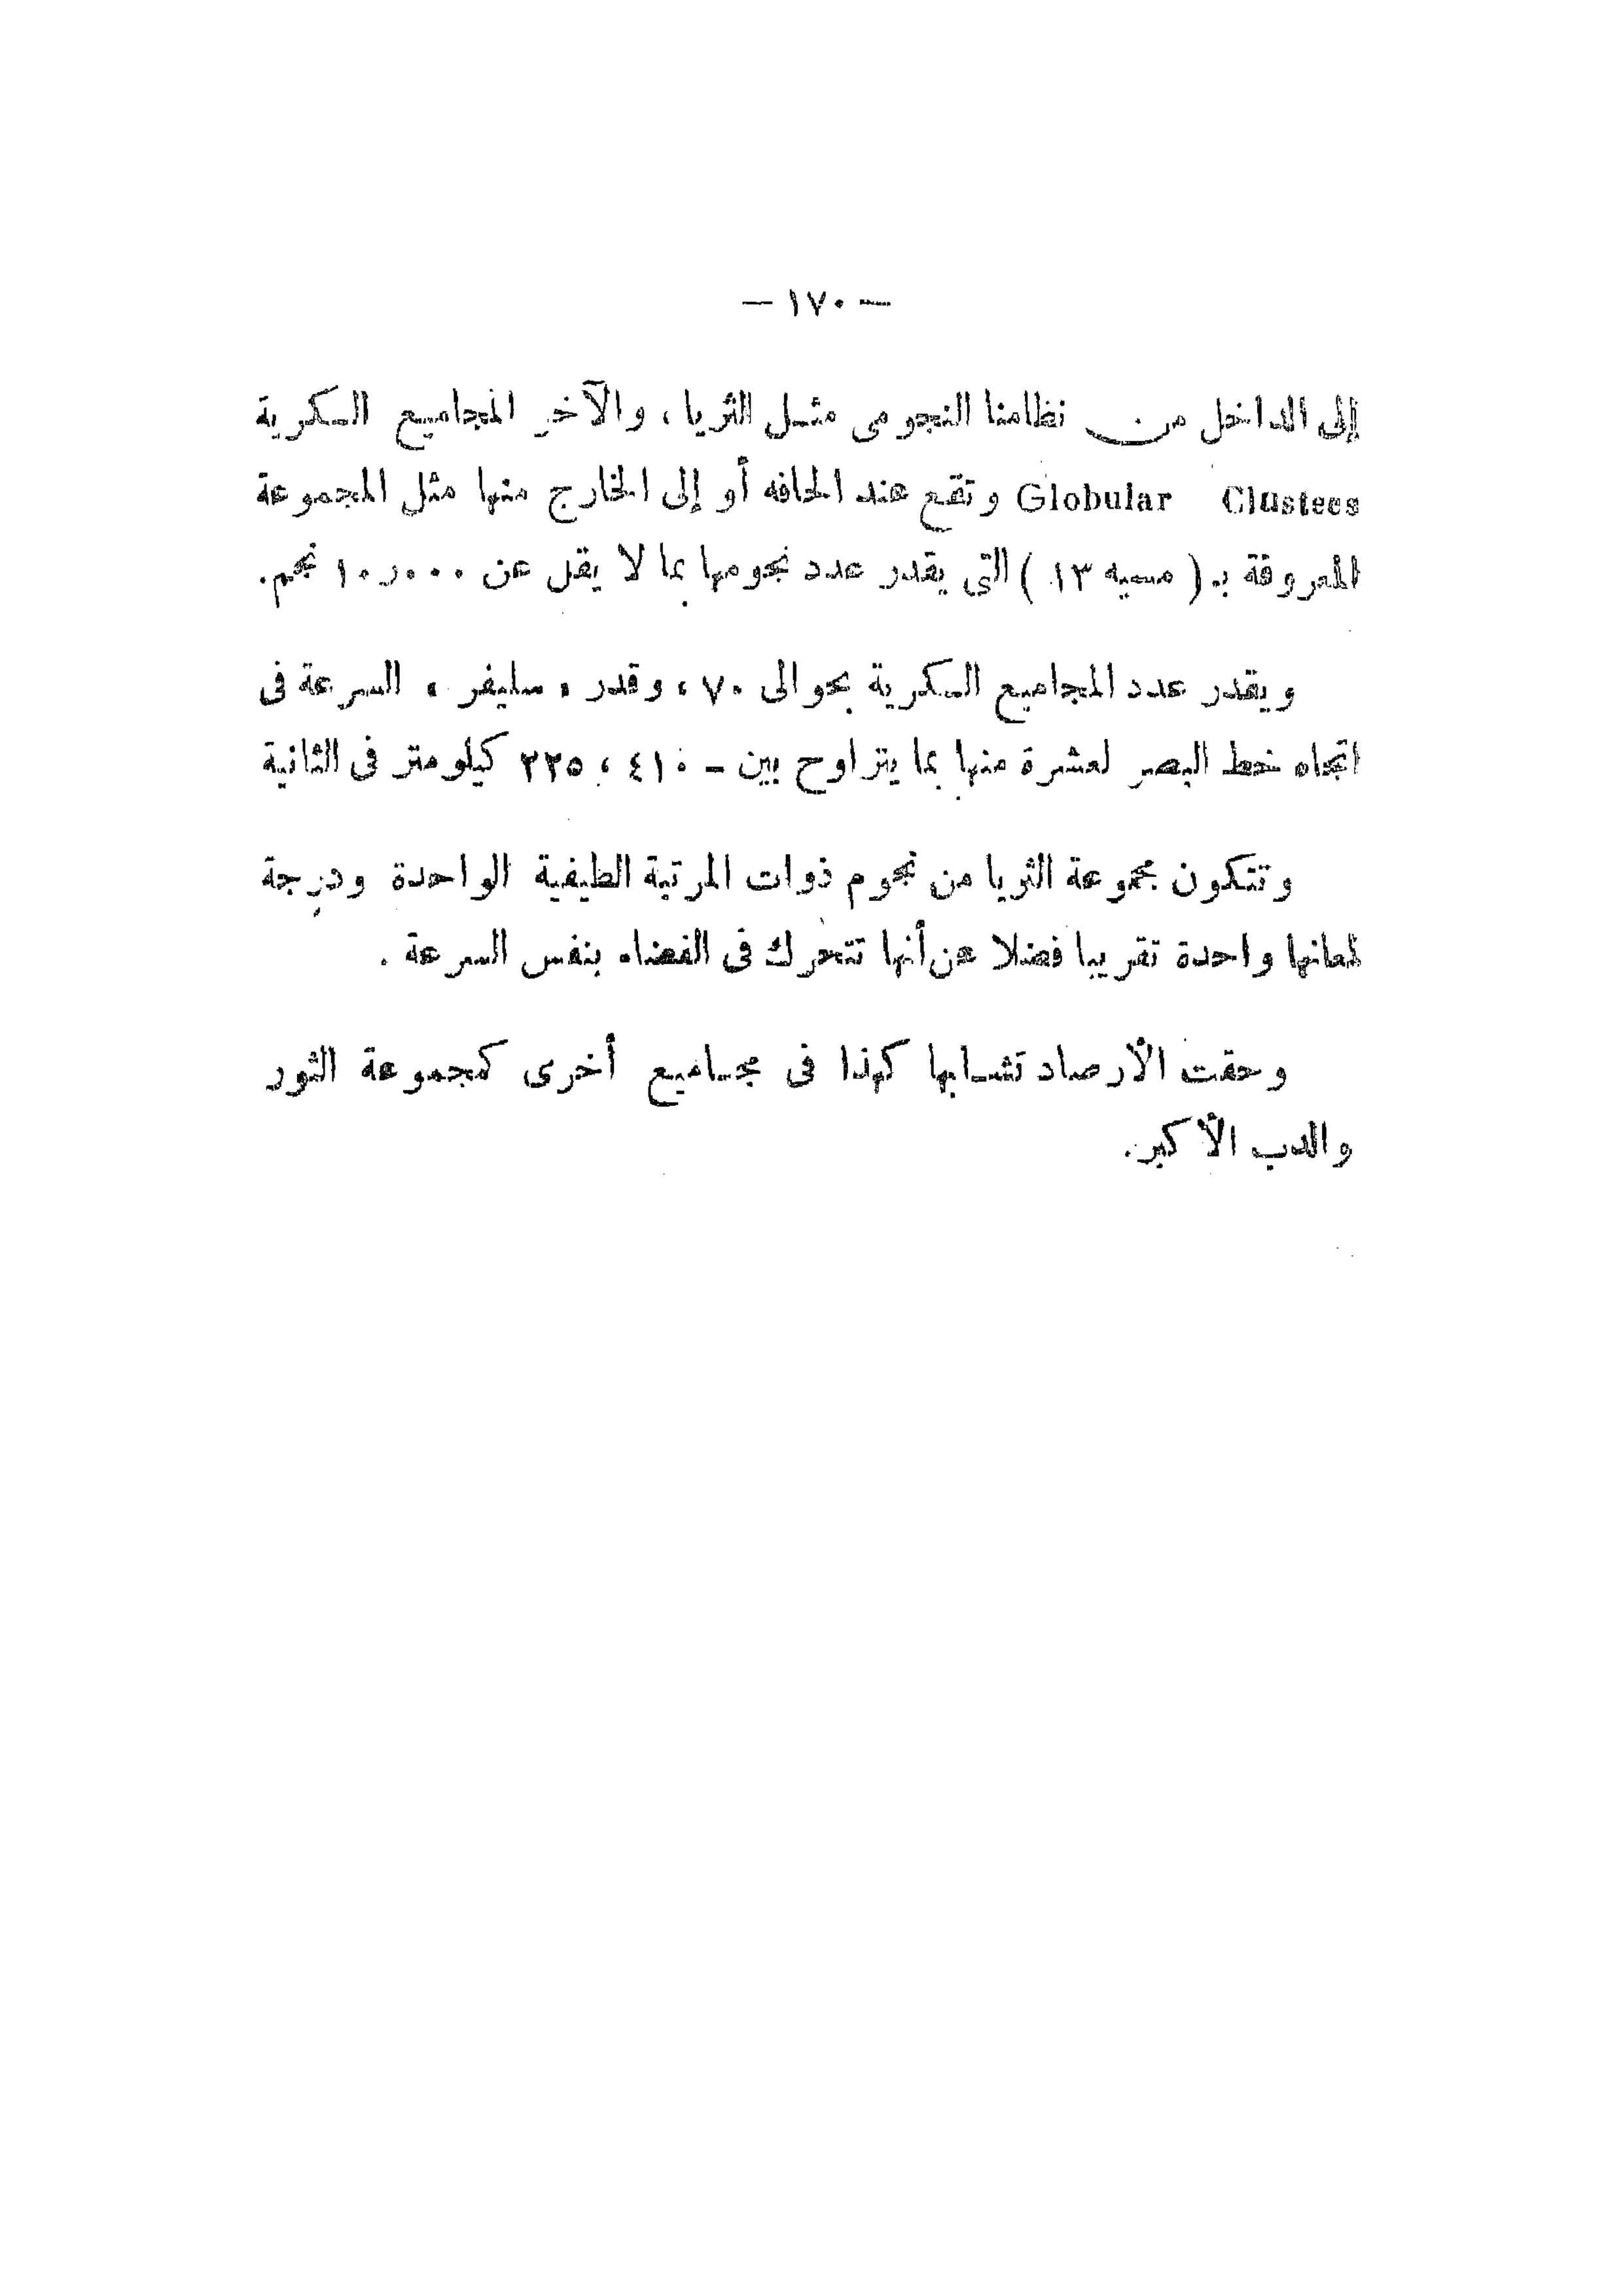 — ١٧٠ —
إلى الداخل من نظامنا النجومى مثل الثريا ، والآخر المجاميع الكرية
Globular Clustees وتقع عند الحافه أو إلى الخارج منها مثل المجموعة
المعروفة بـ ( مسيه ١٣ ) التى يقدر عدد نجومها بما لا يقل عن ١٠٫٠٠٠ نجم .
ويقدر عدد المجاميع الكرية بحوالى ٧٠ ، وقدر « سليفر » السرعة فى
اتجاه خط البصر لعشرة منها بما يتراوح بين – ٤١٠ ، ٢٢٥ كيلومتر فى الثانية
وتتكون مجموعة الثريا من نجوم ذوات المرتبة الطيفية الواحدة ودرجة
لمعانها واحدة تقريبا فضلا عن أنها تتحرك فى الفضاء بنفس السرعة .
وحقت الأرصاد تشابها كهذا فى مجاميع أخرى كمجموعة الثور
والدب الأكبر .